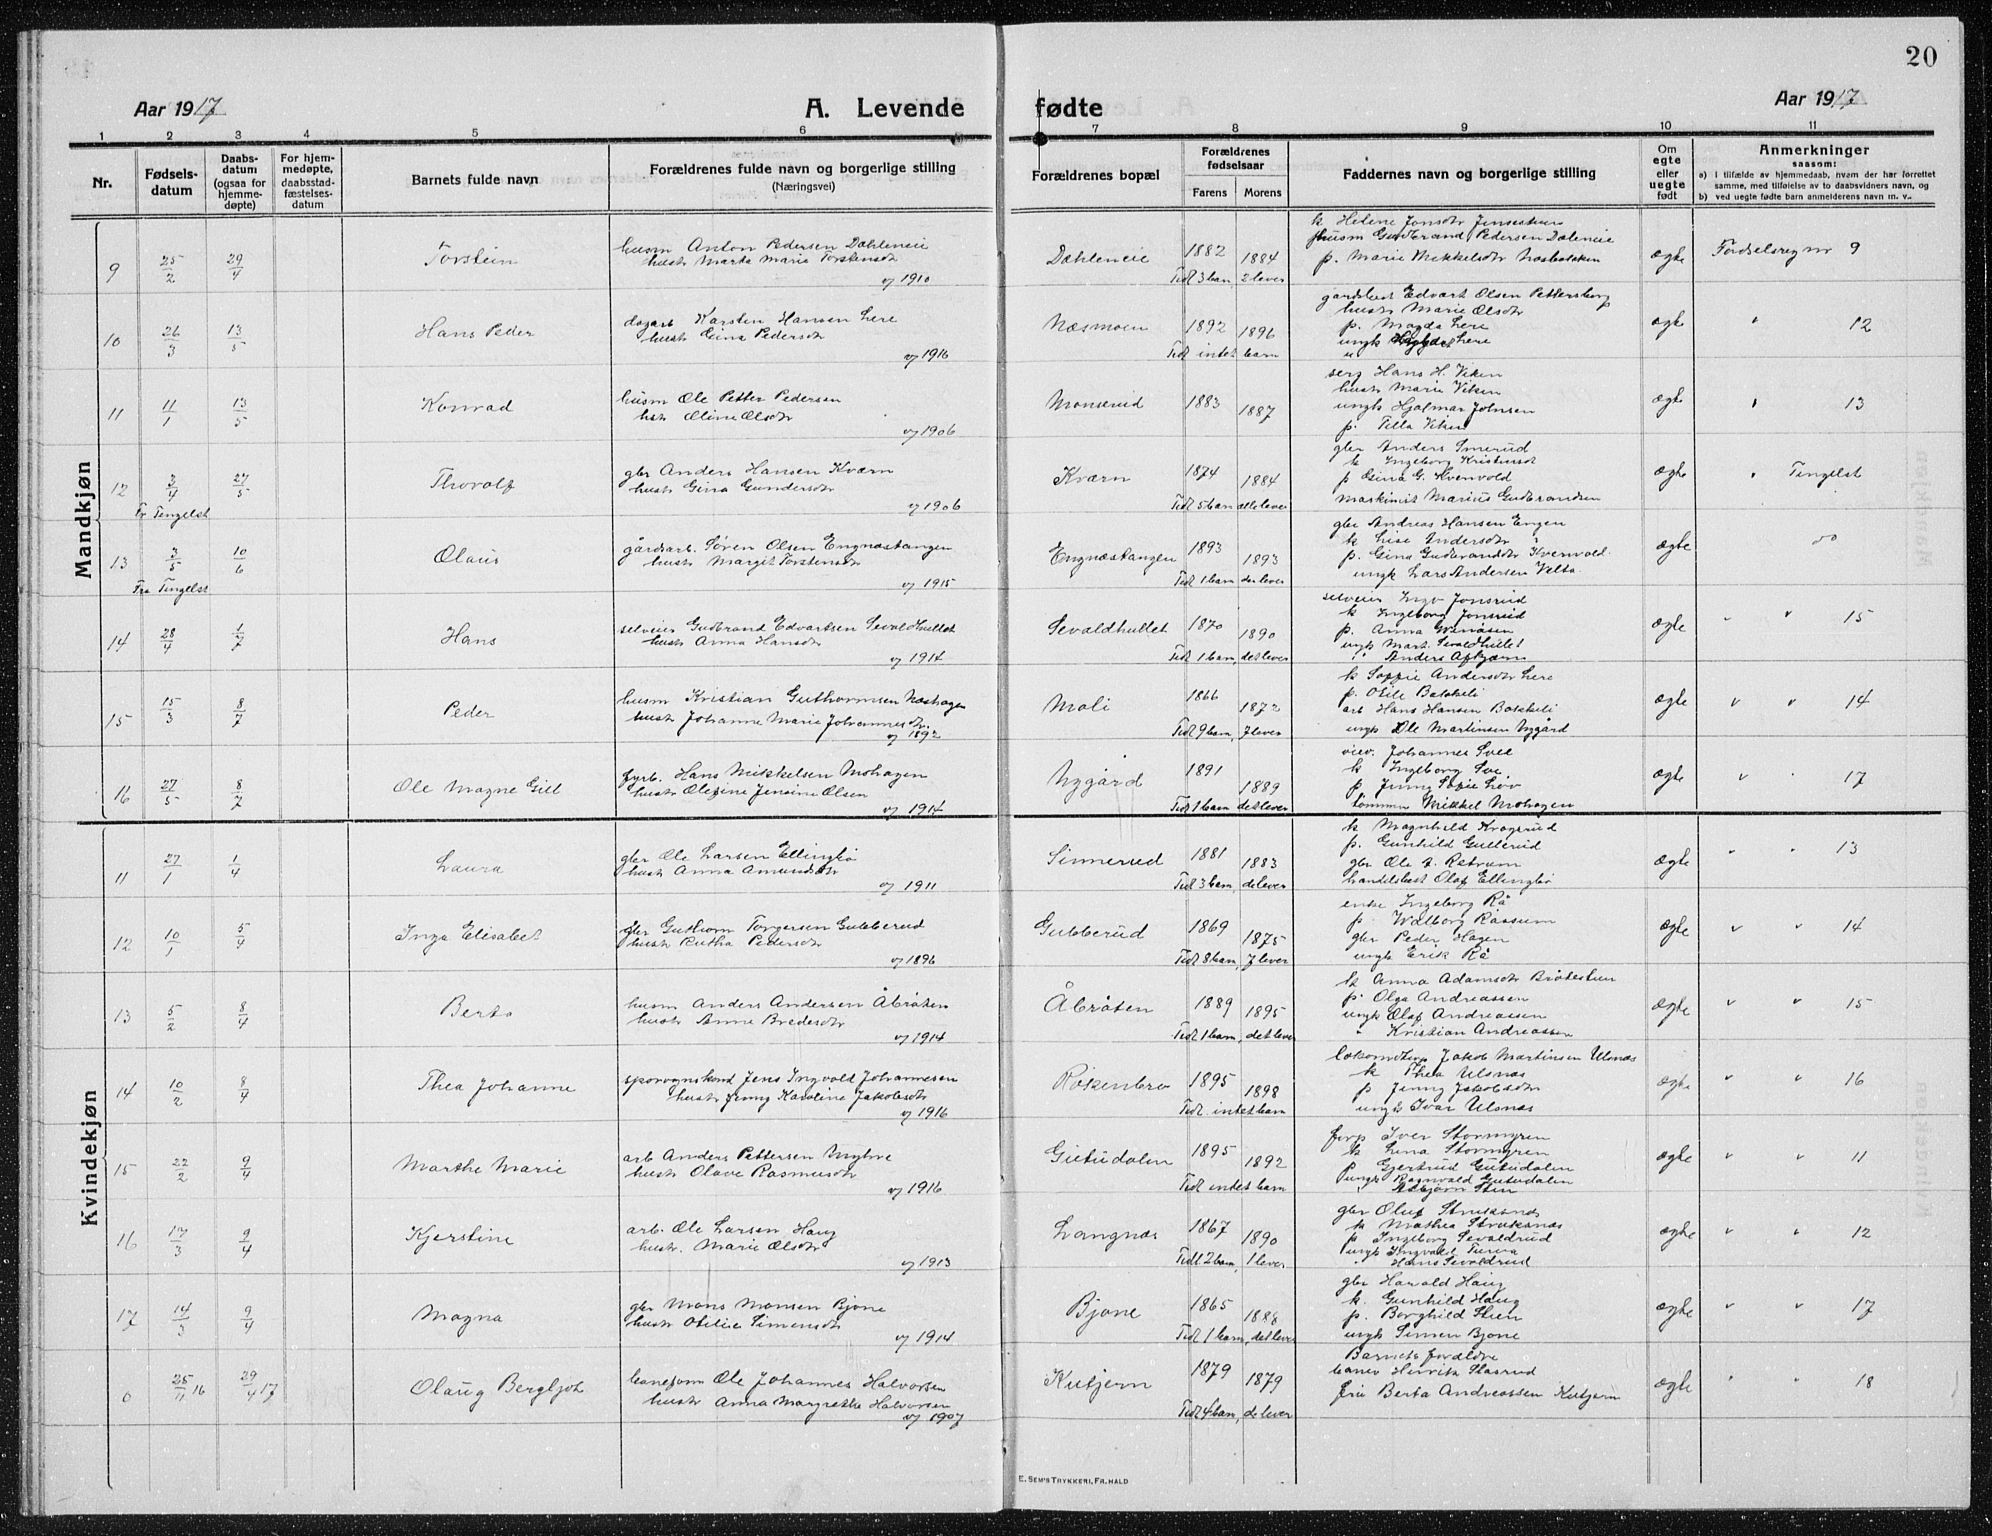 20
Aar 1917
A. Levende
fødte
Aar 1917
1 2 3 4 5 6 7 8 9 10 11
Nr.
Fødsels-
datum
Daabs-
datum
(ogsaa for
hjemme-
døpte)
For hjem-
medøpte,
daabsstad-
fæstelses-
datum
Barnets fulde navn
Forældrenes fulde navn og borgerlige stilling
(Næringsvei)
Forældrenes bopæl
Forældrenes
fødselsaar
Farens Morens
Faddernes navn og borgerlige stilling
Om
egte
eller
uegte
født
Anmerkninger
saasom:
a) I tilfælde av hjemmedaab, hvam der har forrettet
samme, med tilføielse av to daabsvidners navn, og
b) ved uegte fødte barn anmelderens navn m. v.
Mandkjøn
9 25/2 29/4 Torstein
husm Anton Pedersen Dæhleneie
hustr Marta Marie Torstensdtr
vj 1910
Dæhleneie 1882 1884
Tidl 3 barn 2 lever
k Helene Jonsdtr
husm Gudbrand Pedersen Dæleneie
p. Marie Mikkelsdtr
ægte Fødselsreg nr 9
10 26/3 13/5 Hans Peder
dagarb Karsten Hansen Lere
hustr Gina Pedersdtr
vj 1916
Næsmoen 1892 1896
Tidl intet barn
gårdbest Edvart Olsen Pettersborg
hustr Marie Olsdtr
p. Magda Lere
ungk Lere
ægte " 12
11 11/1 13/5 Konrad
husm Ole Petter Pedersen
hstr Oline Olsdtr
vj 1906
Monserud 1883 1887
serg Hans H. Viken
hustr Marie Viken
ungk Hjalmar Johnsen
p. Tilla Viken
ægte " 13
12 3/4 27/5 Thorolf
Fr Tingelst
gbr Anders Hansen Kværn
hustr Gina Gundersdtr
vj 1906
Kværn 1874 1884
Tidl 5 barn alle lever
gbr Anders Smerud
k Ingeborg Kristensdtr
p Gina G. Kvenvold
maskinist Marius Gudbrandsen
ægte " Tingelst
13 3/5 10/6 Olaus
Fra Tingelst
gårdsarb. Søren Olsen Engnæstangen
hustr Margit Torstensdtr
vj 1915
Engnæstangen 1893 1893
Tidl 1 barn det lever
gbr Andreas Hansen Engen
k Lise Andersdtr
p. Gina Gudbrandsdtr Kvenvold
ungk Lars Andersen Velta
ægte
14 28/4 1/7 Hans
selveier Gudbrand Edvartsen Sevaldhullet
hustr Anna Hansdtr
vj 1914
Sevaldhullet 1870 1890
Tidl 1 barn, det lever
selveier Ingv Jonsrud
k Ingeborg Jonsrud
p. Anna
ungk Mart. Sevaldhullet
" Anders
ægte " " 15
15 15/3 8/7 Peder
husm Kristian Guthormsen Næshagen
hustr Johanne Marie Johannesdtr
vj 1892
Moli 1866 1872
Tidl 9 barn, 7 lever
k Soffie Andersdtr Lere
p. Otile Bakkeli
arb Hans Hansen Bakkeli
ungk Ole Martinsen Nygård
ægte " " 14
16 27/5 8/7 Ole Magne Gill
fyrb. Hans Mikkelsen Mohagen
hustr Olefine Jensine Olsen
vj 1914
Nygård 1891 1889
Tidl 1 barn det lever
Johannes Svee
k Ingeborg Sve
p. Jenny Sofie Løv
tømmerm Mikkel Mohagen
ægte " " 17
Kvindekjøn
11 27/1 1/4 Laura
gbr Ole Larsen Ellingbø
hustr Anna Amundsdtr
vj 1911
Sinnerud 1881 1883
Tidl 3 barn, de lever
k Magnhild Kragerud
p. Gunhild Gullerud
gbr Ole
handelsbest Olaf Ellingbø
ægte " " 13
12 10/1 5/4 Inga Elisabet
gbr Guthorm Torgersen Gubberud
hustr Rutha Pedersdtr
vj 1896
Gubberud 1869 1875
Tidl 8 barn, 7 lever
enke Ingeborg Rå
p. Walborg Råssum
gbr Peder Hagen
ungk Erik Rå
ægte " " 14
13 5/2 8/4 Berta
husm Anders Andersen Åbråten
hustr Anne Bredesdtr
vj 1914
Åbråten 1889 1895
Tidl 1 barn, det lever
k Anna Adamsdtr
p. Olga Andreassen
ungk Olaf Andreassen
" Kristian Andreassen
ægte " " 15
14 10/2 8/4 Thea Johanne
sporvognskond Jens Ingvold Johannesen
hustr Jenny Karoline Jakobsdtr
vj 1916
Røkenbro 1895 1898
Tidl. intet barn
Jakob Martinsen Ulsnæs
k Thea Ulsnæs
p Jenny Jakobsdtr
ungk Ivar Ulsnæs
ægte " " 16
15 22/2 9/4 Marthe Marie
arb Anders Pettersen Myhre
hustr Olave Rasmusdtr
vj 1916
Gutudalen 1895 1892
Tidl intet barn
forp Iver Stormyren
k Lina Stormyren
p Gjertrud Gutudalen
ungk Ragnvald Gutudalen
" Asbjørn Sten
ægte " " 11
16 17/3 9/4 Kjerstine
arb. Ole Larsen Haug
hustr. Marie Olsdtr
vj 1913
Langnæs 1867 1890
Tidl 2 barn, 1 lever
gbr Oluf Struksnæs
k Mathea Struksnæs
p Ingeborg Sevaldrud
ungk Ingvald
" Hans Sevaldrud
ægte " " 12
17 14/3 9/4 Magna
gbr Mons Monsen Bjone
hustr Otilie Simensdtr
vj 1914
Bjone 1865 1888
Tidl 1 barn, det lever
gbr Harald Haug
k. Gunhild Haug
p. Borghild Sten
ungk Simen Bjone
ægte " " 17
0 25/11 16 29/4 17 Olaug Bergljot
banefom Ole Johannes Halvorsen
hustr Anna Margrethe Halvorsen
vj 1907
Kutjern 1879 1879
Tidl 4 barn, de lever
Barnets foreldre
banev Henrik Stasrud
fru Berta Andreassen Kutjern
ægte " " 18
E. SEM'S TRYKKERI, FR.HALD